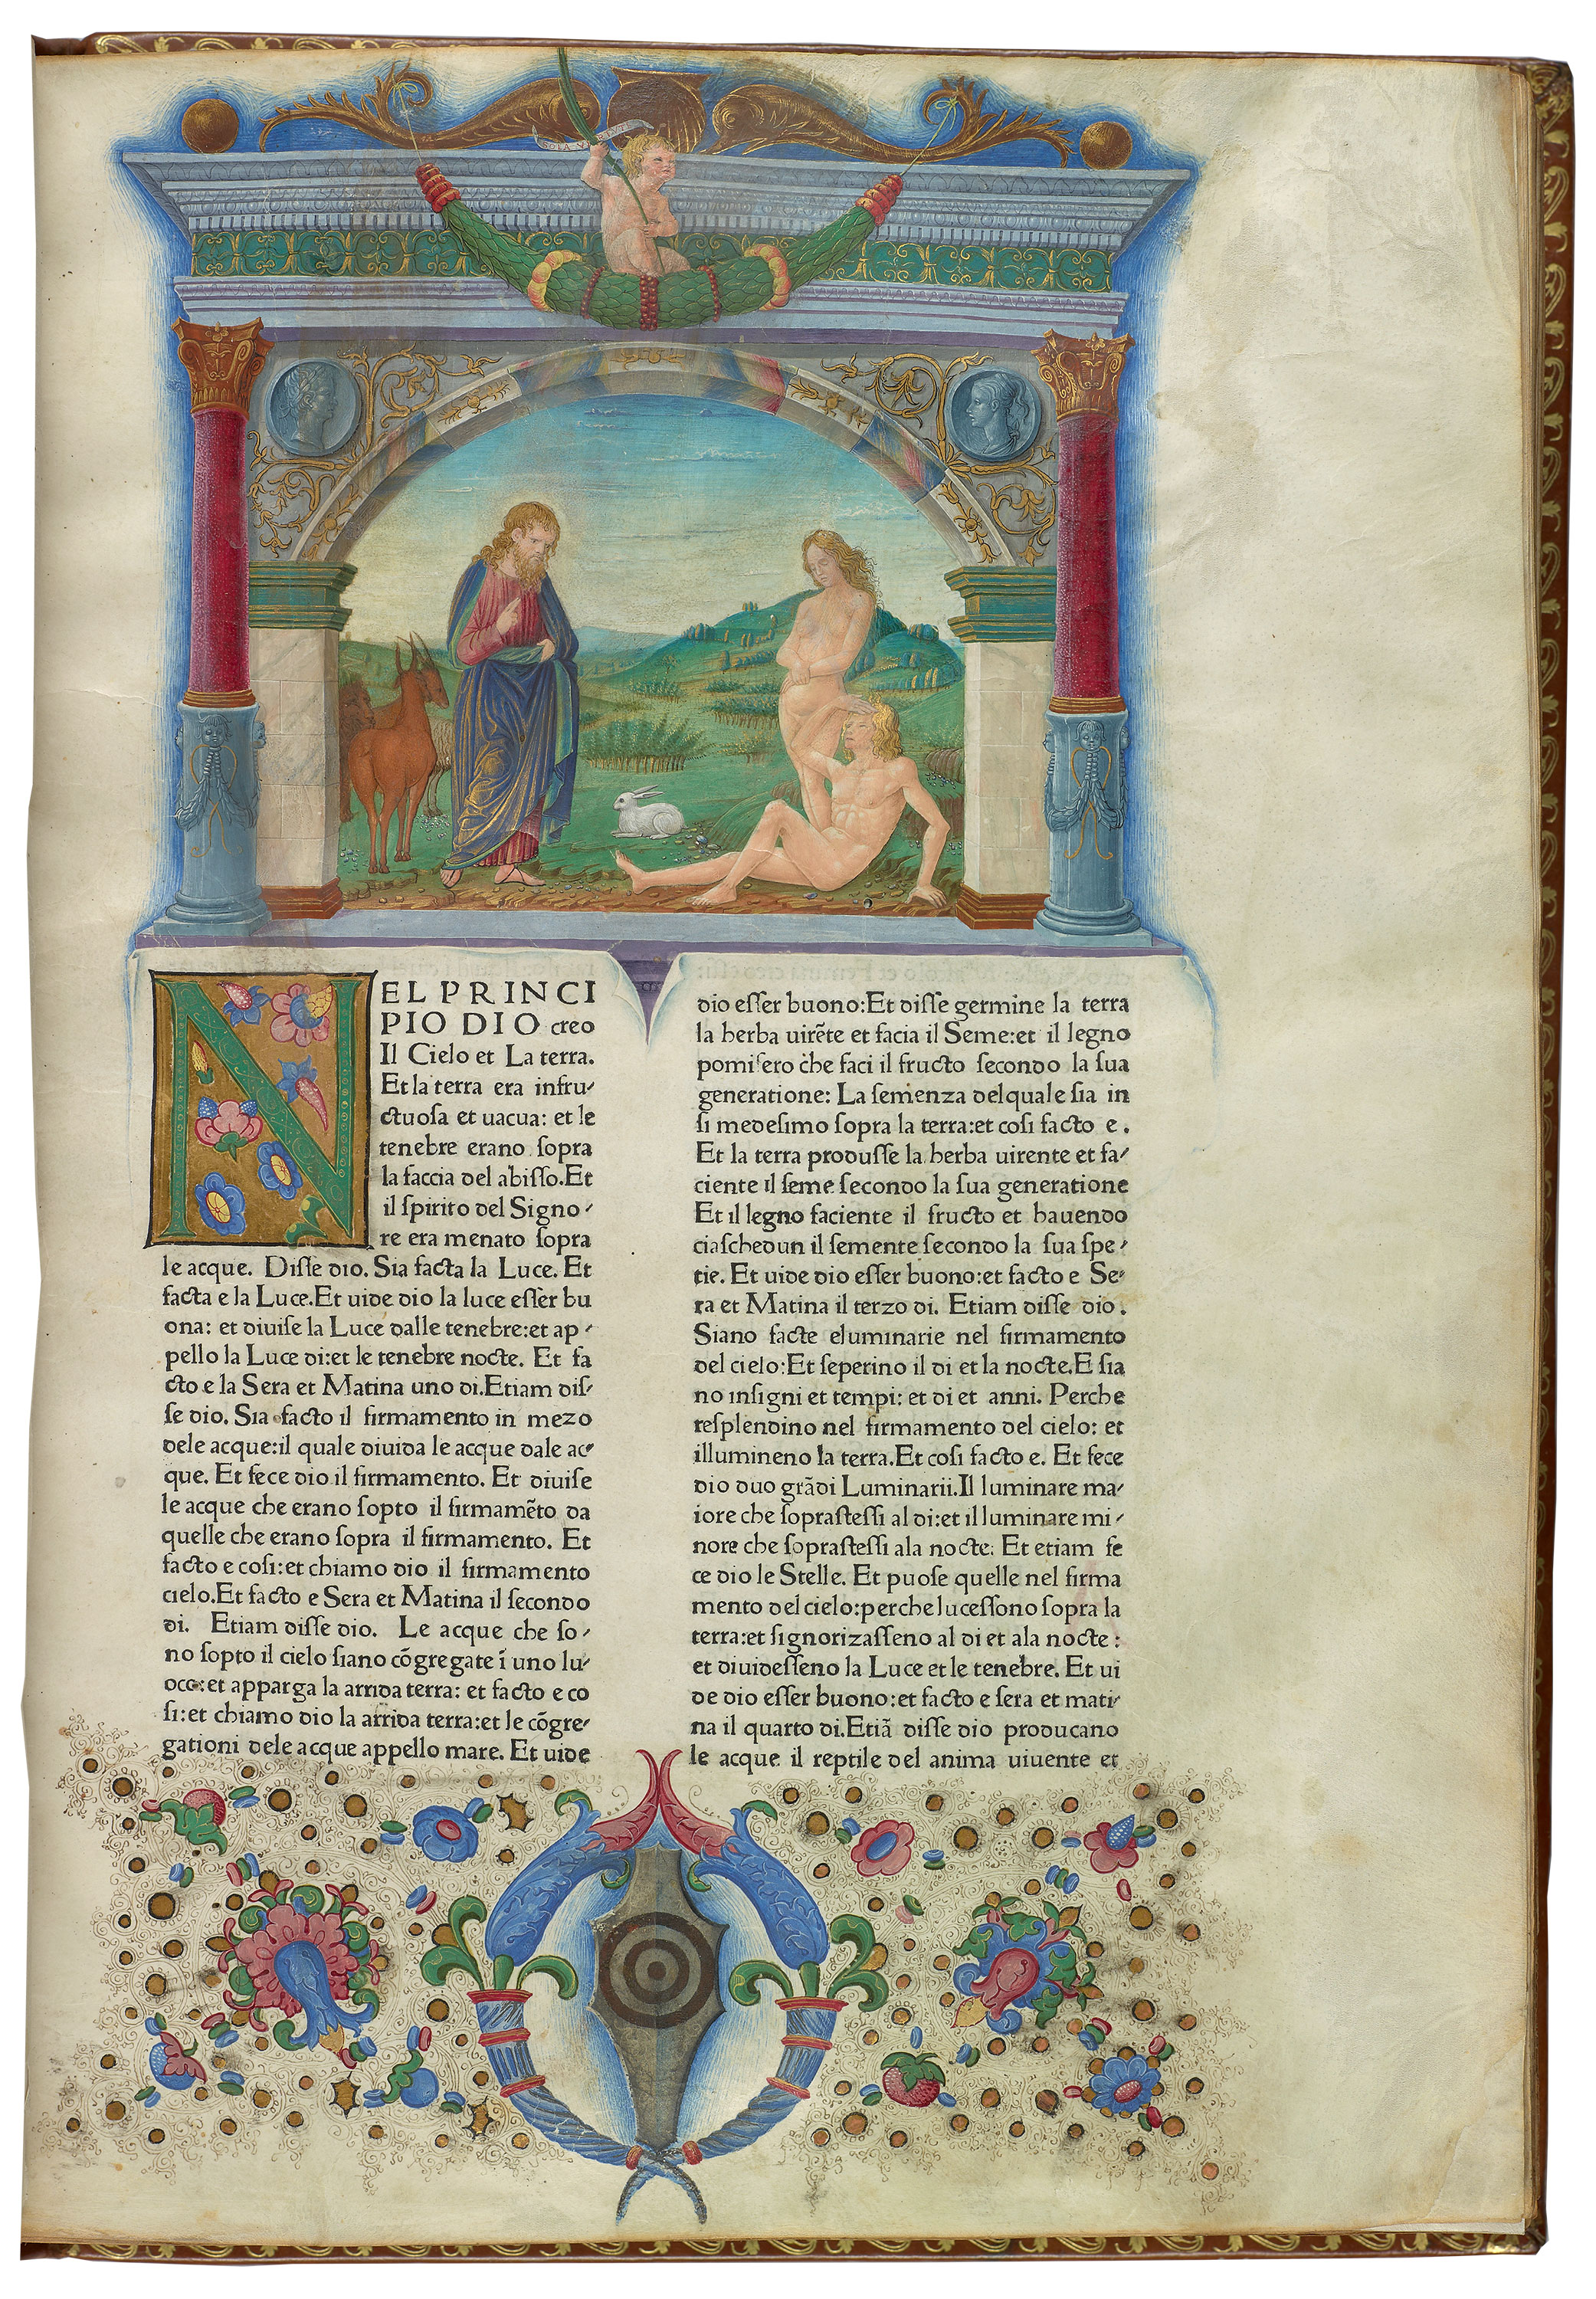 SOLA VIRTVS
NEL PRINCI
PIO DIO creo
Il Cielo et La terra.
Et la terra era infru-
ctuosa et uacua: et le
tenebre erano sopra
la faccia del abisso. Et
il spirito del Signo-
re era menato sopra
le acque. Disse dio. Sia facta la Luce. Et
facta e la Luce. Et uide dio la luce esser bu
ona: et diuise la Luce dalle tenebre: et ap-
pello la Luce di: et le tenebre nocte. Et fa
cto e la Sera et Matina uno di. Etiam dis-
se dio. Sia facto il firmamento in mezo
dele acque: il quale diuida le acque dale ac-
que. Et fece dio il firmamento. Et diuise
le acque che erano sopto il firmamẽto da
quelle che erano sopra il firmamento. Et
facto e cosi: et chiamo dio il firmamento
cielo. Et facto e Sera et Matina il secondo
di. Etiam disse dio. Le acque che so-
no sopto il cielo siano cõgregate ĩ uno lu-
oco: et apparga la arrida terra: et facto e co
si: et chiamo dio la arrida terra: et le cõgre-
gationi dele acque appello mare. Et uide
dio esser buono: Et disse germine la terra
la herba uirẽte et facia il Seme: et il legno
pomifero che faci il fructo secondo la sua
generatione: La semenza del quale sia in
si medesimo sopra la terra: et cosi facto e.
Et la terra produsse la herba uirente et fa-
ciente il seme secondo la sua generatione
Et il legno faciente il fructo et hauendo
ciaschedun il semente secondo la sua spe-
tie. Et uide dio esser buono: et facto e Se-
ra et Matina il terzo di. Etiam disse dio.
Siano facte eluminarie nel firmamento
del cielo: Et seperino il di et la nocte. E sia
no insigni et tempi: et di et anni. Perche
resplendino nel firmamento del cielo: et
illumineno la terra. Et cosi facto e. Et fece
dio duo grãdi Luminarii. Il luminare ma-
iore che soprastessi al di: et il luminare mi-
nore che soprastessi ala nocte. Et etiam fe
ce dio le Stelle. Et puose quelle nel firma
mento del cielo: perche lucessono sopra la
terra: et signorizasseno al di et ala nocte:
et diuidesseno la Luce et le tenebre. Et ui
de dio esser buono: et facto e sera et mati-
na il quarto di. Etiã disse dio producano
le acque il reptile del anima uiuente et